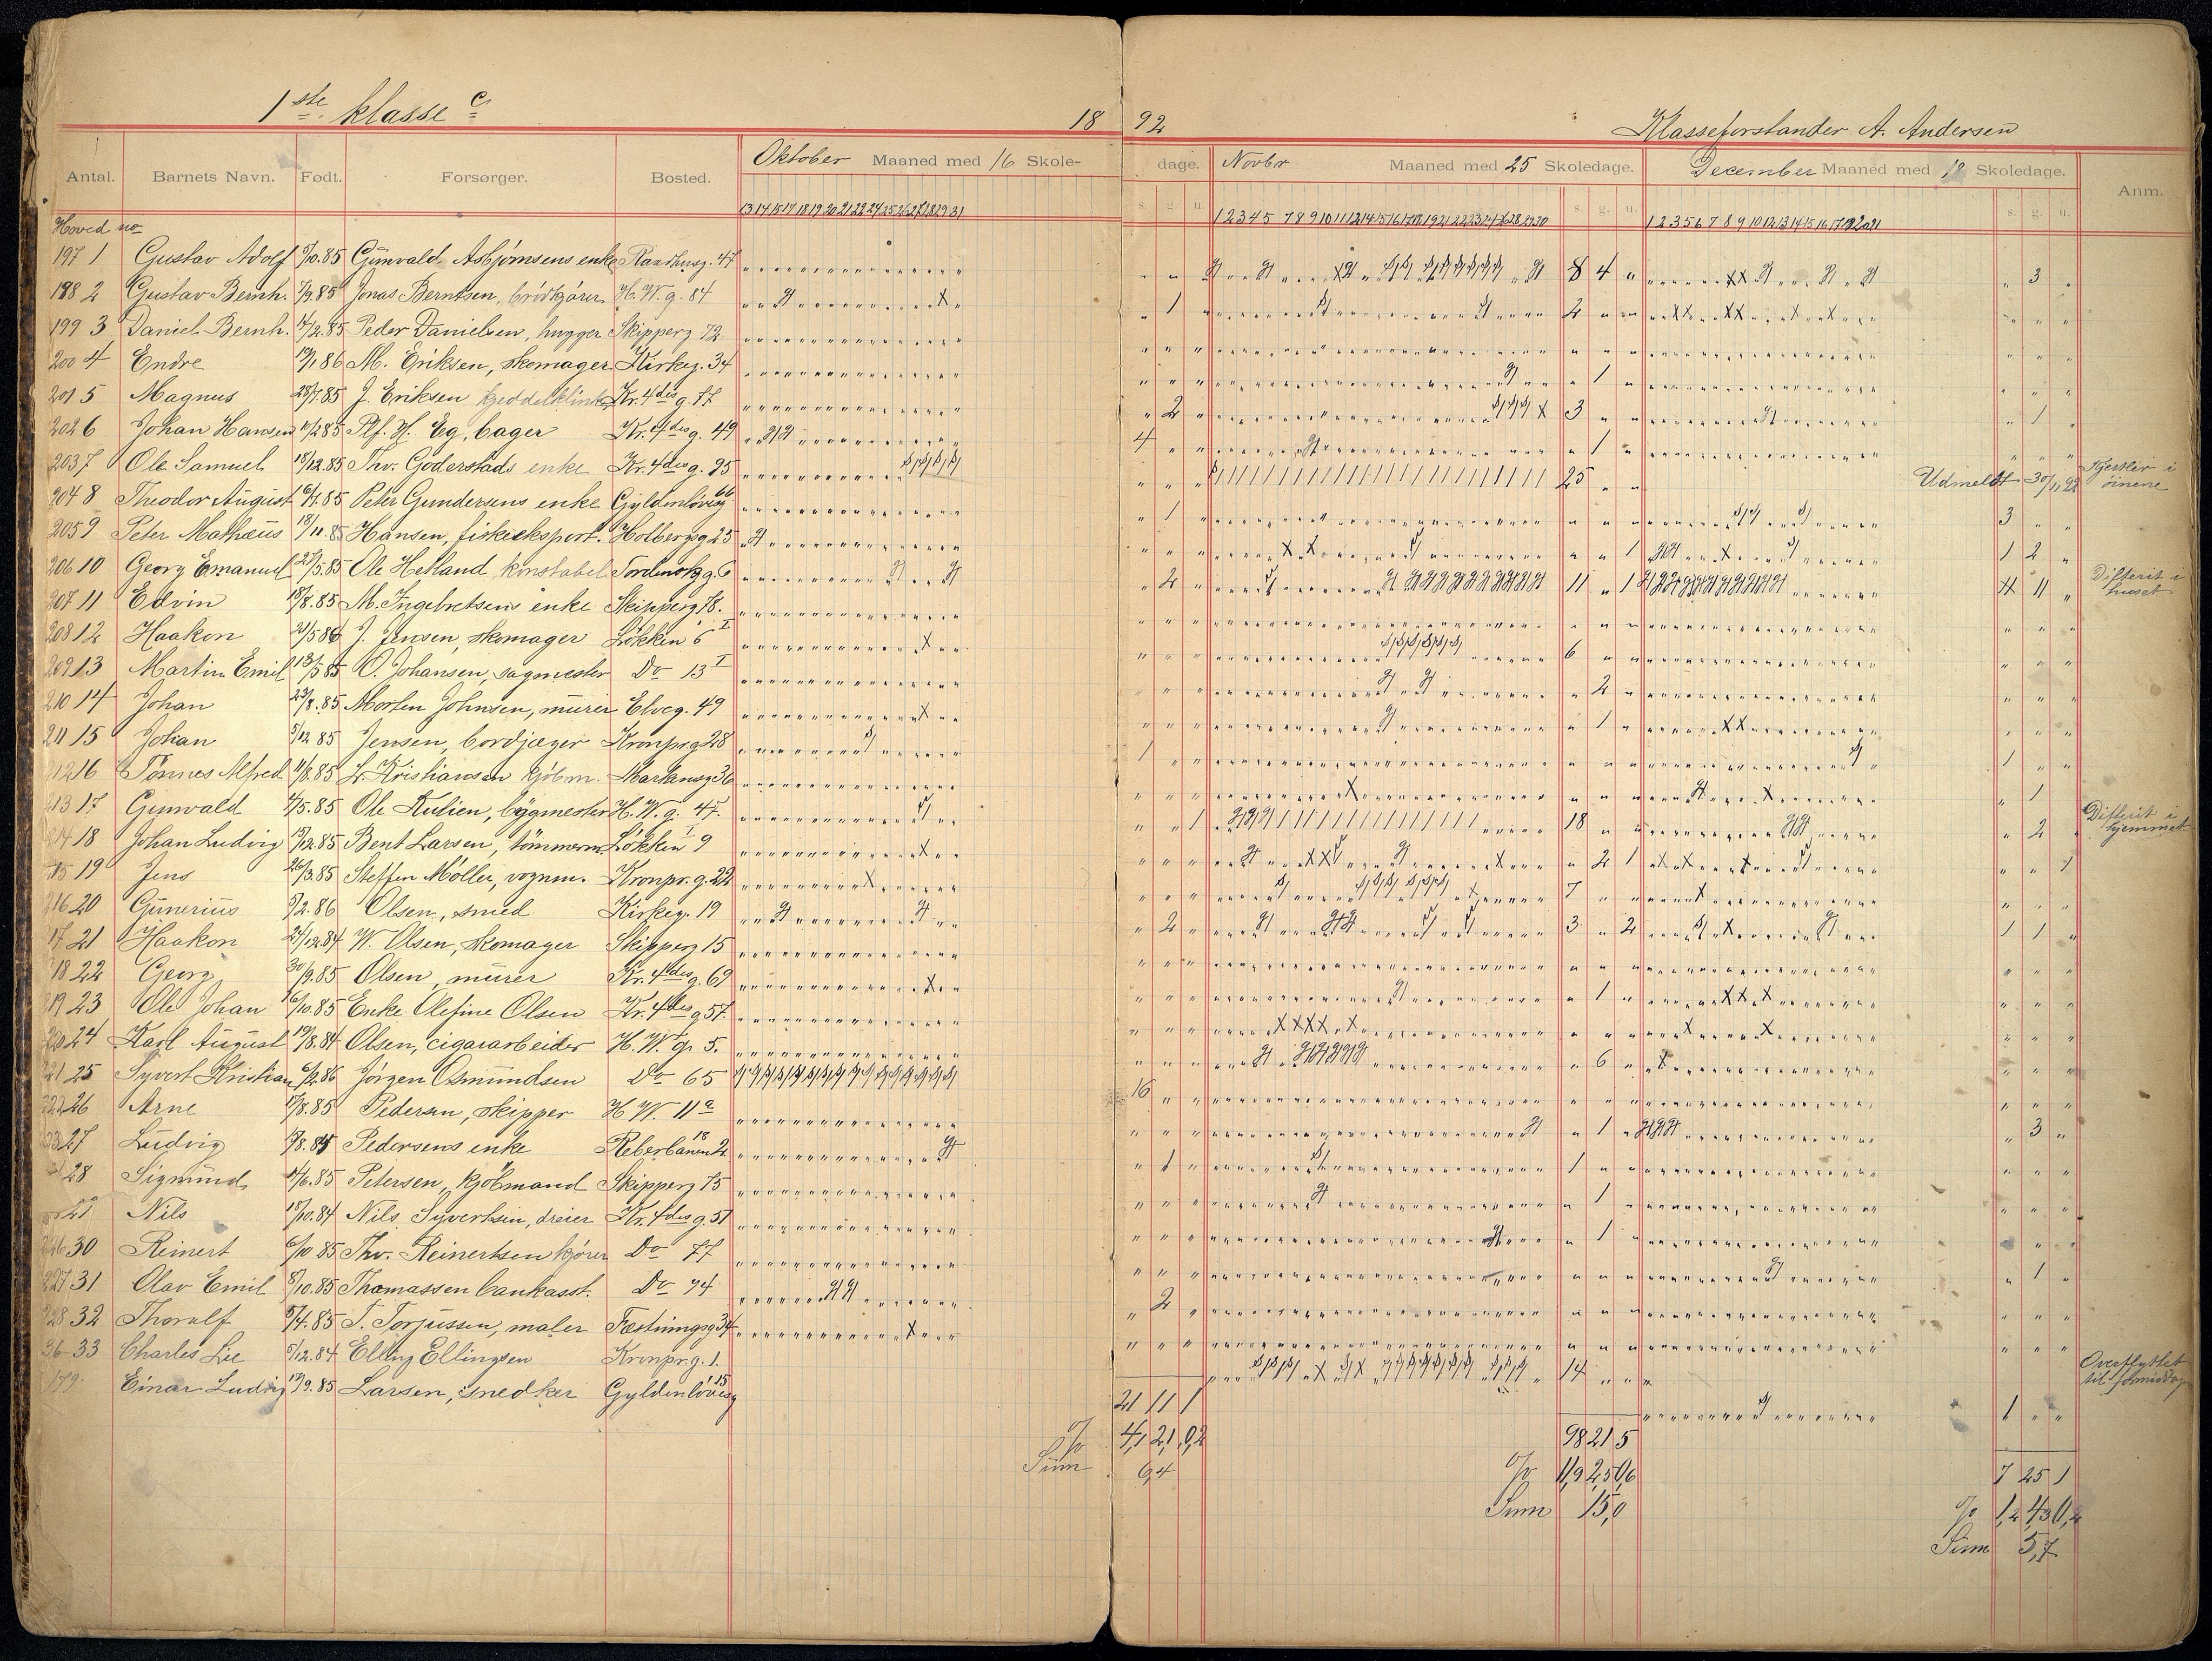 1ste klasse c
18 92
Klasseforstander A. Andersen
Antal. Barnets Navn. Født. Forsørger. Bosted. Oktober Maaned med 16 Skoledage. Novbr Maaned med 25 Skoledage. December Maaned med 18 Skoledage. Anm.
s. g. u. s. g. u. s. g. u.
13 14 15 17 18 19 20 21 22 24 25 26 27 28 29 31
Hoved no
197 1 Gustav Adolf 5/10.85 Gunvald Asbjørnsens enke Raadhusg. 47 8 4 " " 3 "
198 2 Gustav Bernh. 7/9.85 Jonas Berntsen, brödkjörer H. W. g. 84 " 1 " 2 " "
199 3 Daniel Bernh. 14/2.85 Peder Danielsen, hugger Skipperg 72
200 4 Endre 19/1 86 M. Eriksen, skomager Kirkeg. 34 " 1 "
201 5 Magnus 28/7.85 J. Eriksen kjeddelklinker Kr. 4des g. 77 " 2 " 3 " " " 1 "
202 6 Johan Hansen Plf. H. Eg, bager Kr. 4des g. 49 4 " 1 "
203 7 Ole Samuel 18/12.85 Thv. Goderstads enke Kr. 4des g. 95 25 " " Udmeldt 30/11 92 Kjertler i öinene
204 8 Theodor August 6/7.85 Peter Gundersens enke Gyldenlövesg 66 " 1 " 3 " "
205 9 Peter Mathæus 18/11.85 Hansen, fiskieksport. Holbergsg 25 " " 1 1 2 "
206 10 Georg Emanuel 27/5.85 Ole Hetland, konstabel Tordenskg. 6 " 2 " 11 " 1 4 11 " Difterit i huset
207 11 Edvin 18/8.85 M. Ingebretsens enke Skipperg 78.
208 12 Haakon 21/5 86 J. Jensen, skomager Lökken 6 I 6 " "
209 13 Martin Emil O. Johansen, sagmester Do 13 I " 2 "
210 14 Johan 23/8.85 Morten Johnsen, murer Elveg. 49 " 1 "
211 15 Johan 5/12 85 Jensen, bordjæger Kronpr.g 28 1 1 " "
212 16 Tönnes Alfred 11/8.85 L. Kristiansen kjöbm. Markensg 36 " 1 "
213 17 Gunvald 4/5.85 Ole Kulien, bygmester H. W. g. 45. " " 1 18 " " " 2 " Difterit i hjemmet
214 18 Johan Ludvig Bent Larsen, tömmerm. Lökken I 9 " 2 1 " " 1
215 19 Jens 26/3.85 Steffen Möller, vognm. Kronpr. g. 22 7 " "
216 20 Gunerius 5/2.86 Olsen, smed Kirkeg. 19 " 2 " 3 " 2 1 1 "
217 21 Haakon 24/12.84 W. Olsen, skomager Skipperg 15
218 22 Georg 30/9.85 Olsen, murer Kr. 4des g. 69 " 1 "
219 23 Ole Johan 16/10.85 Enke Olefine Olsen Kr. 4des g 57.
220 24 Karl August 19/8.84 Olsen, cigararbeider H. W. g. 5. " 6 "
221 25 Syvert Kristian 6/2.86 Jörgen Osmundsen Do 65 16 " "
222 26 Arne 17/8.85 Pedersen, skipper H W. 11 a " 1 " " 3 "
223 27 Ludvig Pedersens enke Reberbanen 18 " 1 " 1 " "
28 Sigmund 11/6.85 Petersen, kjöbmand Skipperg 75 " 1 "
Nils 18/10.84 Nils Syvertsen, dreier Kr. 4des g. 51 " 1 "
226 30 Reinert 6/10 85 Thv. Reinertsen kjörer Do 77 " 1 "
227 31 Olav Emil 8/10.85 Thomassen bankasst. Do 74 " 2 "
228 32 Thoralf T. Torjussen, maler Fæstningsg 34
36 33 Charles Lie 5/12.84 Elling Ellingsen Kronpr. g. 1. 14 " " Overflyttet til formiddag
179 Einar Ludvig 19/9.85 Larsen, snedker Gyldenlövesg 15 1 " "
21 11 1 98 21 5 7 25 1
% 4,1 2,1 0,2 % 11,9 2,5 0,6 % 1,2 4,3 0,2
Sum 6,4 Sum 15,0 Sum 5,7